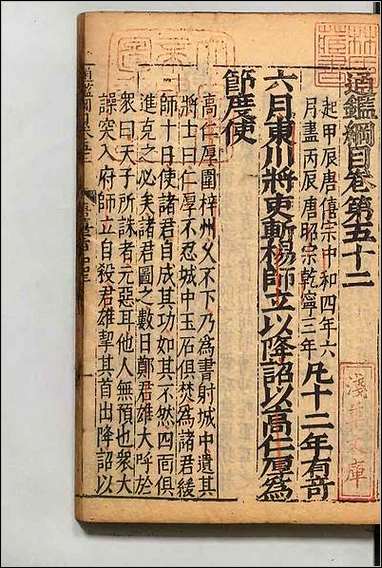 通鑑綱目卷第五十二
起甲辰唐僖宗中和四年六
月盡丙辰唐昭宗乾寧三年
凡十二年有奇
六月東川將吏斬楊師立以降詔以高仁厚為
節度使
高仁厚圍梓州久不下乃為書射城中遺其
將士曰仁厚不忍城中玉石俱焚為諸君緩
師十日使諸君自成其功如其不然四面俱
進克之必矣諸君圖之數日鄭君雄大呼於
衆曰天子所誅者元惡耳他人無預也衆大
譟突入府師立自殺君雄挈其首出降詔以
淺草文庫